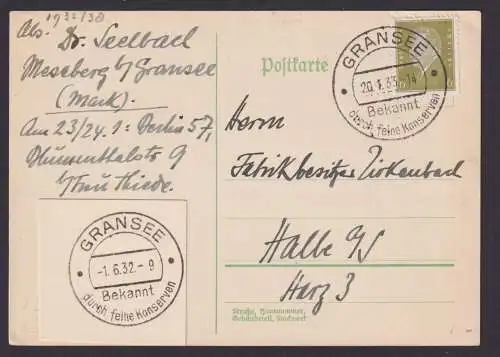 1932/38
Abs. Dr. Seelbach
Meseberg b/Gransee
(Mark).
Am 23/24.1: Berlin 57,
Blumenthalstr 9
b/Frau Thiede.
GRANSEE
-1.6.32.-9
Bekannt
durch feine Konserven
Postkarte
GRANSEE
Bekannt
durch feine Konserven
Herrn
Fabrikbesitzer Zirkenbach
Halle a/S
Harz 3
Straße, Hausnummer,
Gebäudeteil, Stockwerk